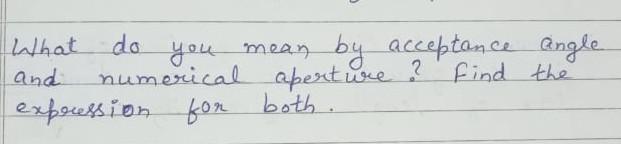 What do you mean by acceptance angle
and numerical aperture? Find the
expression for both.